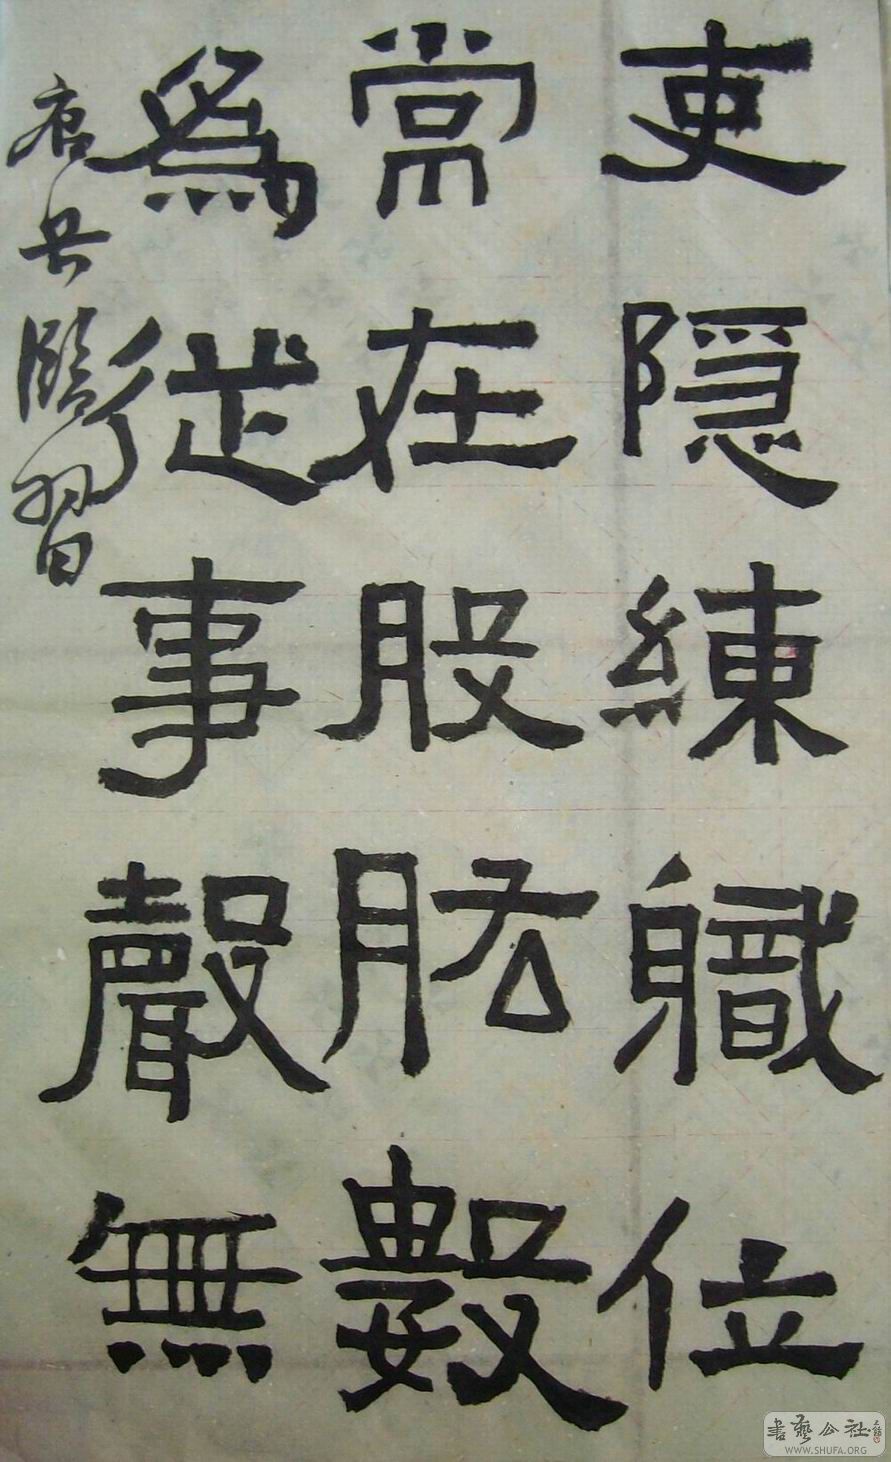 吏隱練職位
常在股肱數
爲從事聲無
臨習
書藝公社
WWW.SHUFA.ORG